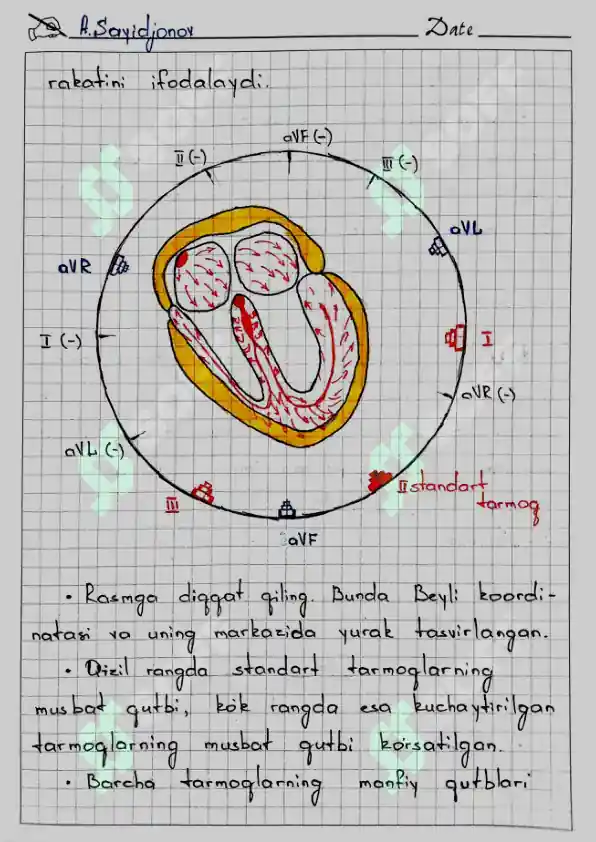 A.Sayidjonov Date
rakatini ifodalaydi.
aVF (-)
II (-)
III (-)
aVL
aVR
I (-)
I
aVR (-)
aVL (-)
II standart
tarmoq
III
aVF
• Rasmga diqqat qiling. Bunda Beyli koordi-
natasi va uning markazida yurak tasvirlangan.
• Qizil rangda standart tarmoqlarning
musbat qutbi, kók rangda esa kuchaytirilgan
tarmoqlarning musbat qutbi kórsatilgan.
• Barcha tarmoqlarning manfiy qutblari